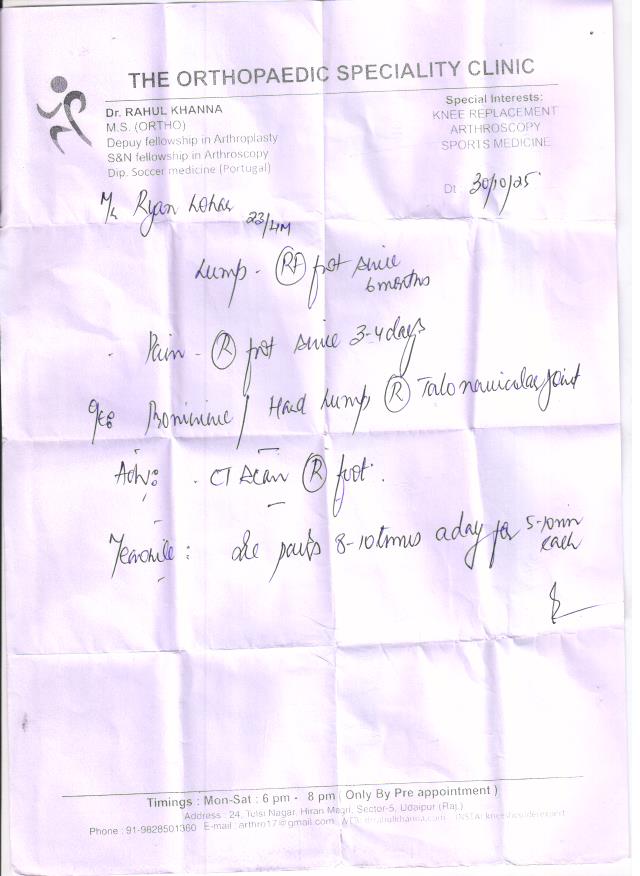 THE ORTHOPAEDIC SPECIALITY CLINIC
Dr. RAHUL KHANNA
M.S. (ORTHO)
Depuy fellowship in Arthroplasty
S&N fellowship in Arthroscopy
Dip. Soccer medicine (Portugal)
Special Interests:
KNEE REPLACEMENT
ARTHROSCOPY
SPORTS MEDICINE
Dt 30/10/25
Ryan
23/M
Lump - foot since
6 months
Pain - R foot since 3-4 days
Hard Lump R Talonavicular joint
Adv: CT Scan R foot.
Meanwhile: Ice packs 8-10 times a day for 5-10 min
each
Timings : Mon-Sat : 6 pm - 8 pm ( Only By Pre appointment )
Address : 24, Tulsi Nagar, Hiran Magri, Sector-5, Udaipur (Raj.)
Phone : 91-9828501360 E-mail : arthro17@gmail.com